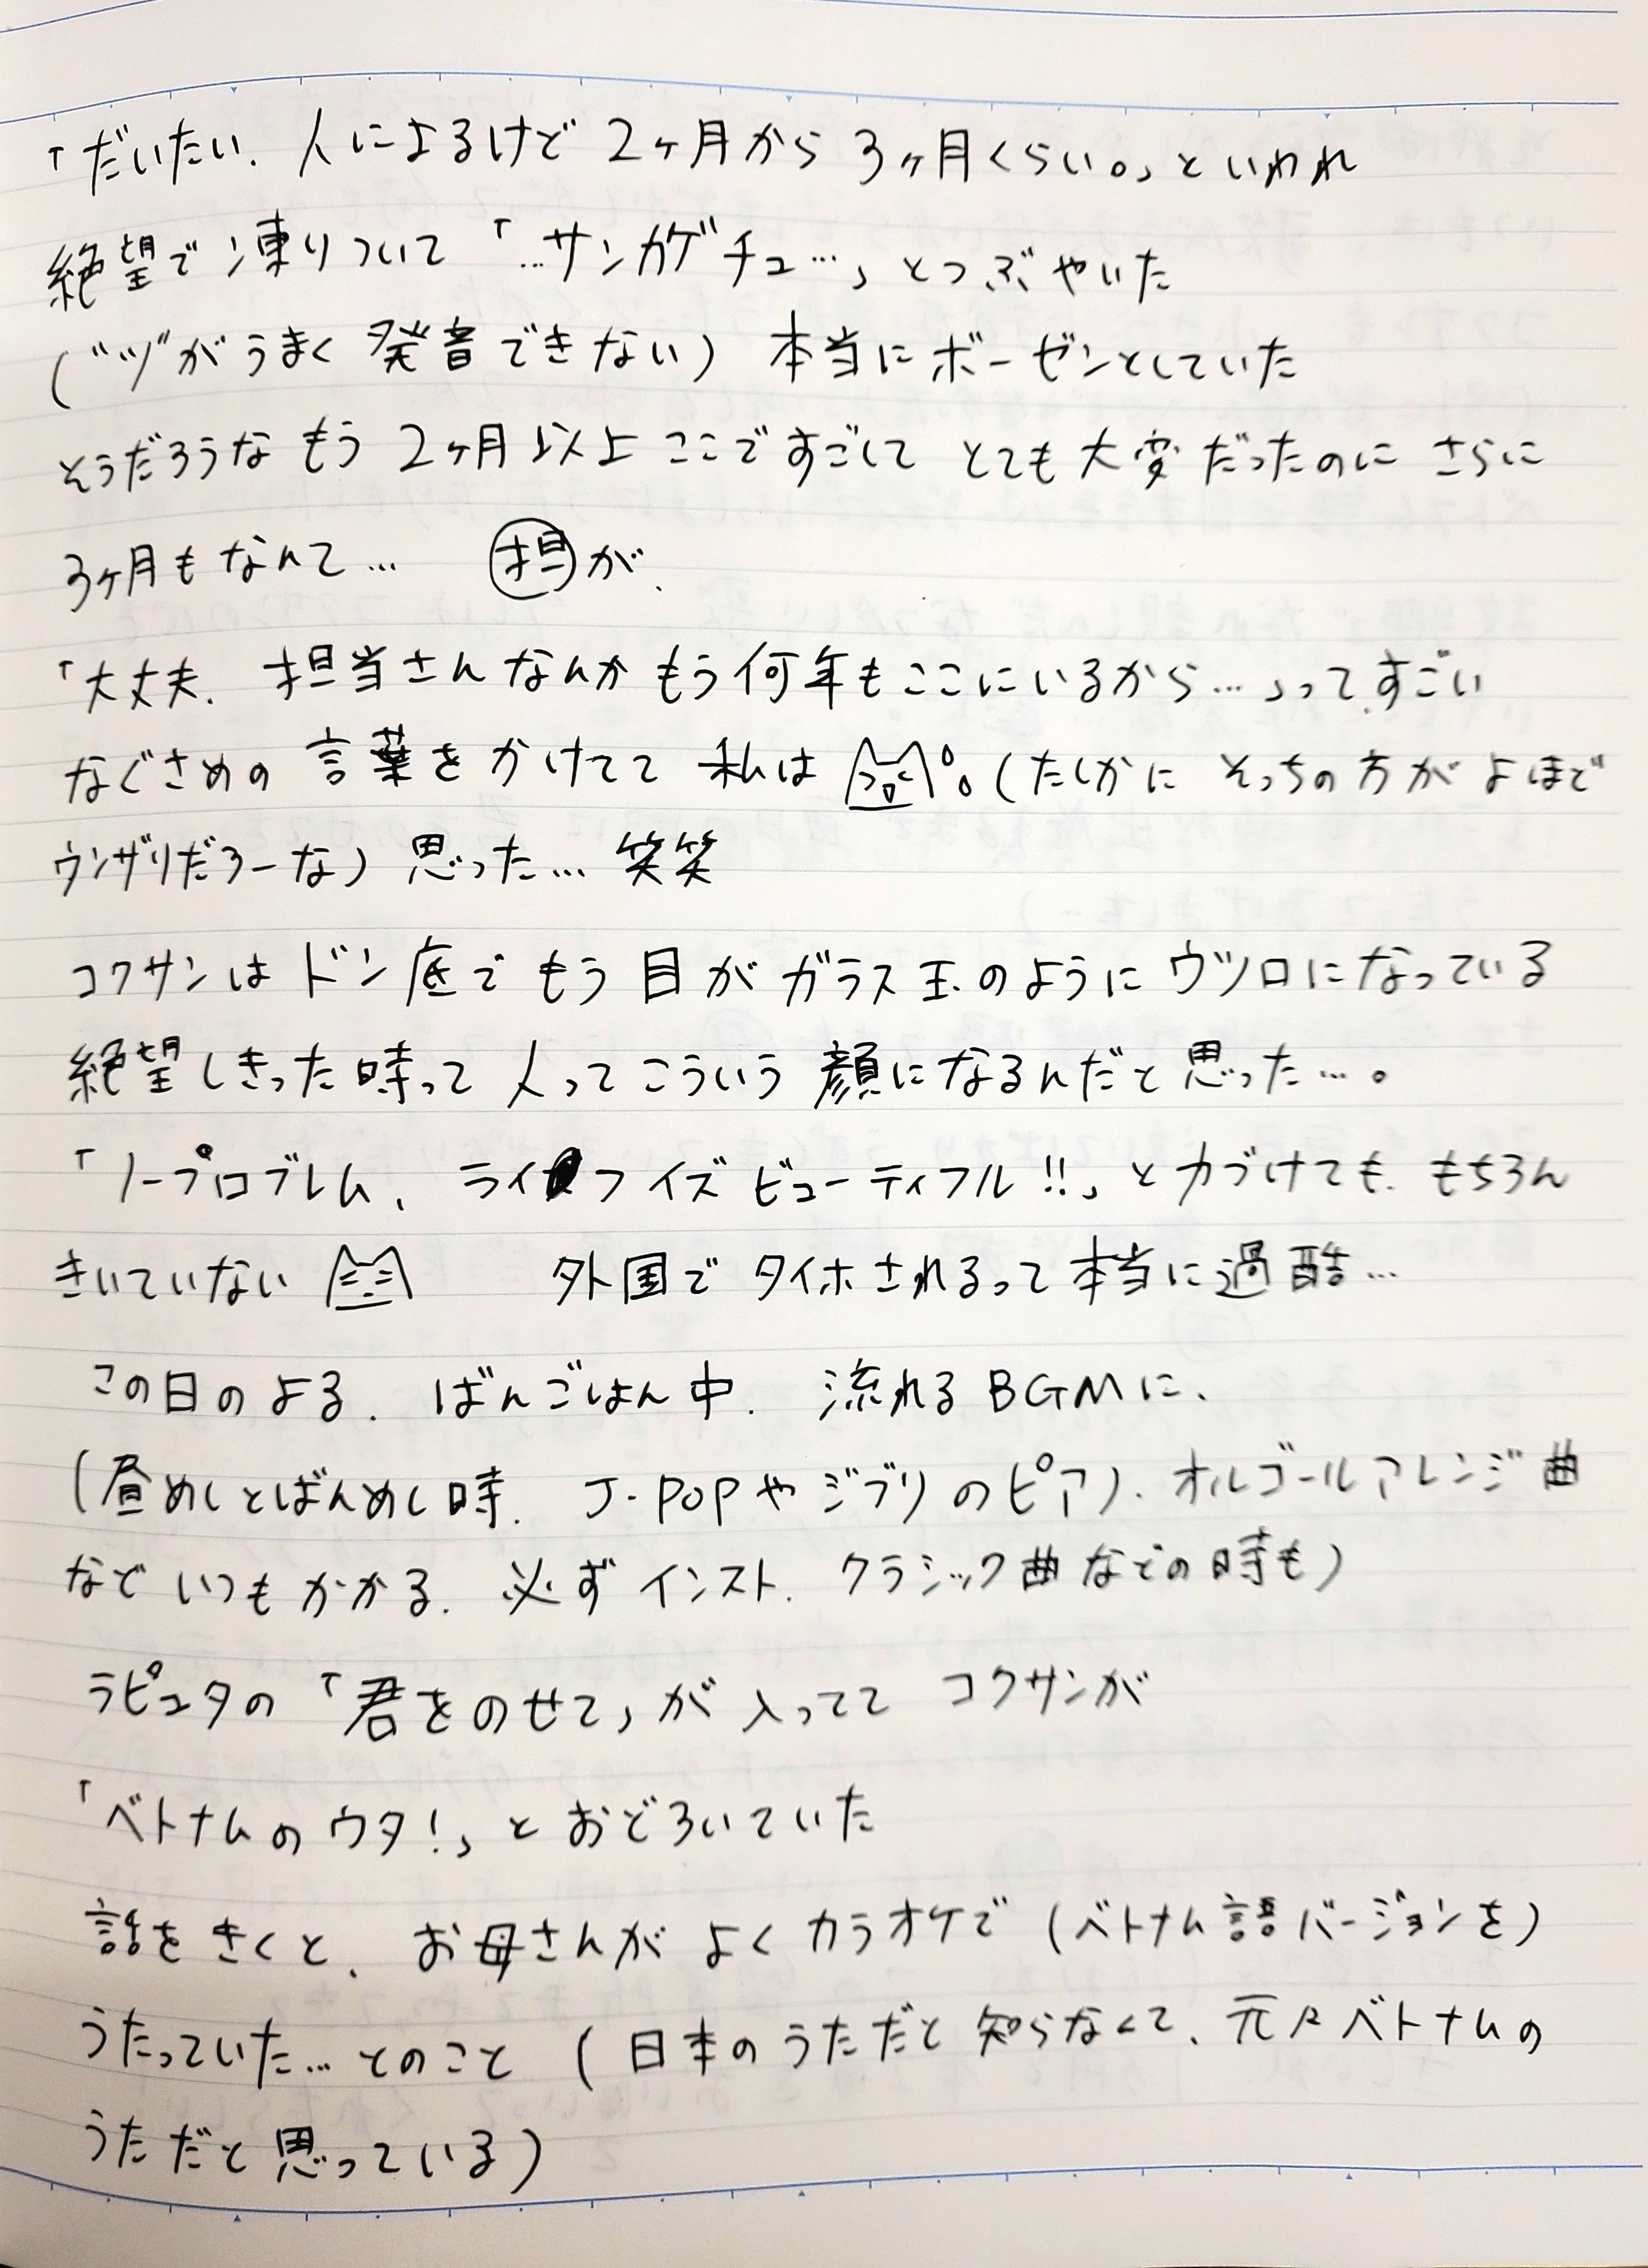 「だいたい、人によるけど 2ヶ月から 3ヶ月くらい。」といわれ
絶望で凍りついて「…サンカゲチュ…」とつぶやいた
(“ツ”がうまく発音できない) 本当にボーゼンとしていた
そうだろうな もう 2ヶ月以上ここですごして とても大変だったのに さらに
3ヶ月もなんて… 担が、
「大丈夫、担当さんなんかもう何年もここにいるから…」ってすごい
なぐさめの言葉をかけてて 私は (たしかに そっちの方が よほど
ウンザリだろーな) 思った… 笑笑
コクサンは ドン底で もう目が ガラス玉のように ウツロになっている
絶望しきった時って 人ってこういう顔になるんだと思った…。
「ノープロブレム、ライフ イズ ビューティフル!!」と力づけても、もちろん
きいていない 外国で タイホされるって本当に過酷…
この日のよる、ばんごはん中、流れるBGMに、
(昼めしとばんめし時、J-POPやジブリのピアノ、オルゴールアレンジ曲
など いつもかかる、必ずインスト、クラシック曲などの時も)
ラピュタの「君をのせて」が入ってて コクサンが
「ベトナムのウタ!」とおどろいていた
話をきくと、お母さんが よく カラオケで (ベトナム語バージョンを)
うたっていた…とのこと (日本のうただと知らなくて、元々ベトナムの
うただと思っている)